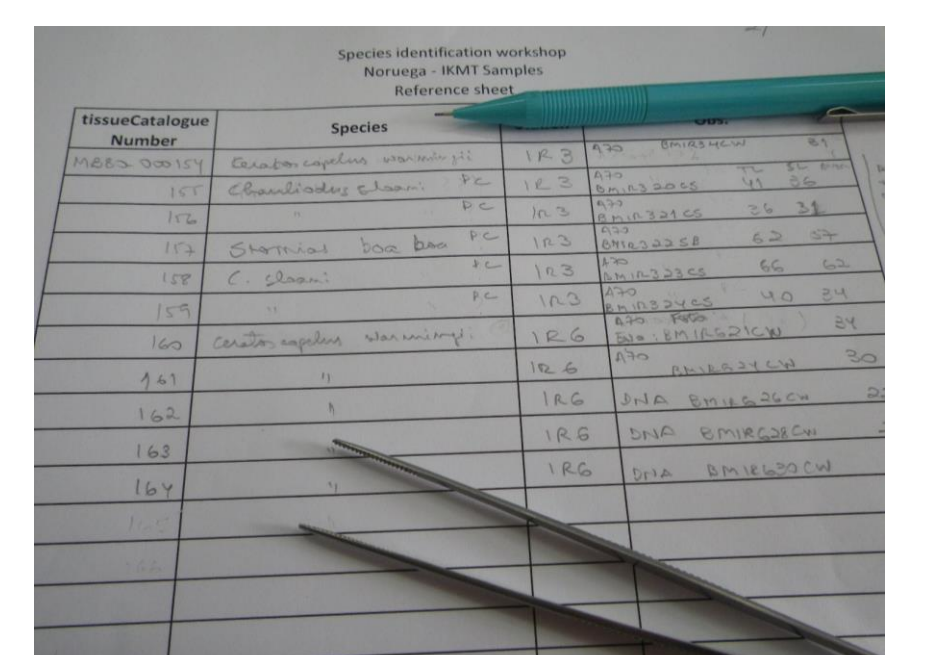 Species identification workshop
Noruega - IKMT Samples
Reference sheet
tissueCatalogue Number Species Obs.
000154 Ceratoscopelus warmingii 1R3 A70 BMIR34CW 81
TL SL
155 Chauliodus sloani PC 1R3 A70 BMIR320CS 41 36
156 " PC 1R3 A70 BMIR321CS 36 31
157 Stomias boa boa PC 1R3 A70 BMIR322SB 62 57
158 C. sloani PC 1R3 A70 BMIR323CS 66 62
159 " PC 1R3 A70 BMIR324CS 40 34
160 Ceratoscopelus warmingii 1R6 A70 BMIR621CW 34
161 " 1R6 A70 BMIR624CW 30
162 " 1R6 DNA BMIR626CW
163 " 1R6 DNA BMIR628CW
164 " 1R6 DNA BMIR630CW